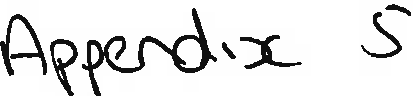 Appendix 5